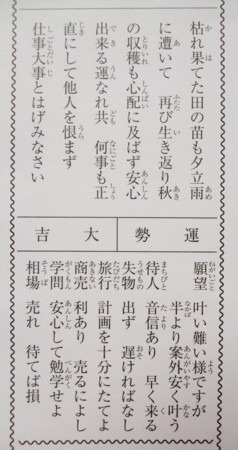 枯れ果てた田の苗も夕立雨
に遭いて 再び生き返り秋
の収穫も心配に及ばず安心
出来る運なれ共 何事も正
直にして他人を恨まず
仕事大事とはげみなさい
運勢大吉
願望 叶い難い様ですが
半より案外安く叶う
待人 音信あり 早く来る
失物 出ず 遅ければなし
旅行 計画を十分にたてよ
商売 利あり 売るによし
学問 安心して勉学せよ
相場 売れ 待てば損